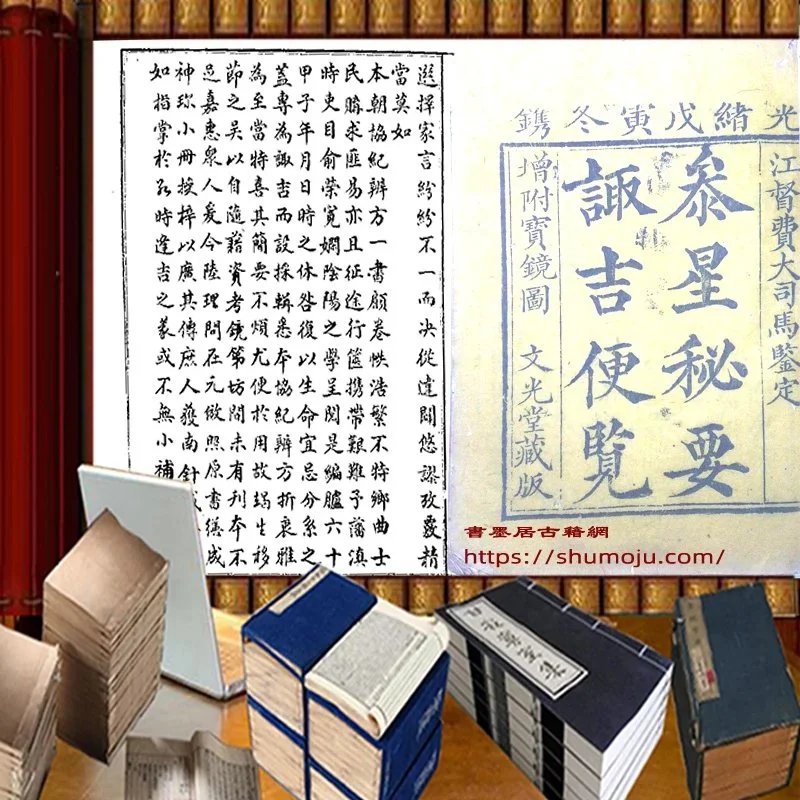 光緒戊寅冬鐫
江督費大司馬鑒定
叅星秘要
諏吉便覽
增附寶鏡圖 文光堂藏版
選擇家言紛紛不一而决從違關悠謬攷覈精
當莫如
本朝協紀辨方一書顧卷帙浩繁不特鄉曲士
民購求匪易亦且征途行篋携帶艱難予藩滇
時吏目俞榮寬嫺陰陽之學呈閱是編臚六十
甲子年月日時之休咎復以生命宜忌分系之
蓋專為諏吉而設採輯悉本協紀辨方折衷雅
為至當特喜其簡要不煩尤便於用故 生移
節之吳以自隨藉資考鏡第坊間未有刊本不
忌嘉惠衆人爰令陸理問在元倣照原書 成
神珍小冊授梓以廣其傳庶人人獲南針
如指掌於 時逢吉之義或不無小補
書墨居古籍網
https://shumoju.com/